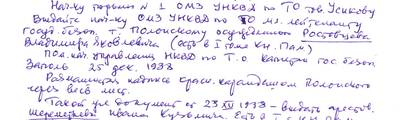 Нач-ку тюрьмы № 1 ОМЗ УНКВД по ТО тов. Усикову
Выдайте нач-ку ОМЗ УНКВД по ТО мл. лейтенанту
госуд. безоп. т. Полонскому осужденного Ростовцева
Владимира Яковлевича (есть в I томе Кн. Пам)
Пом. нач. управления НКВД по Т.О. капитан гос. безоп.
25 дек. 1938
Размашистая надпись красн. карандашом Полонского
через весь лист.
Такой же документ от 23 XII 1938 - выдать арестов.
Шереметьева Ивана Кузьмича. Есть в